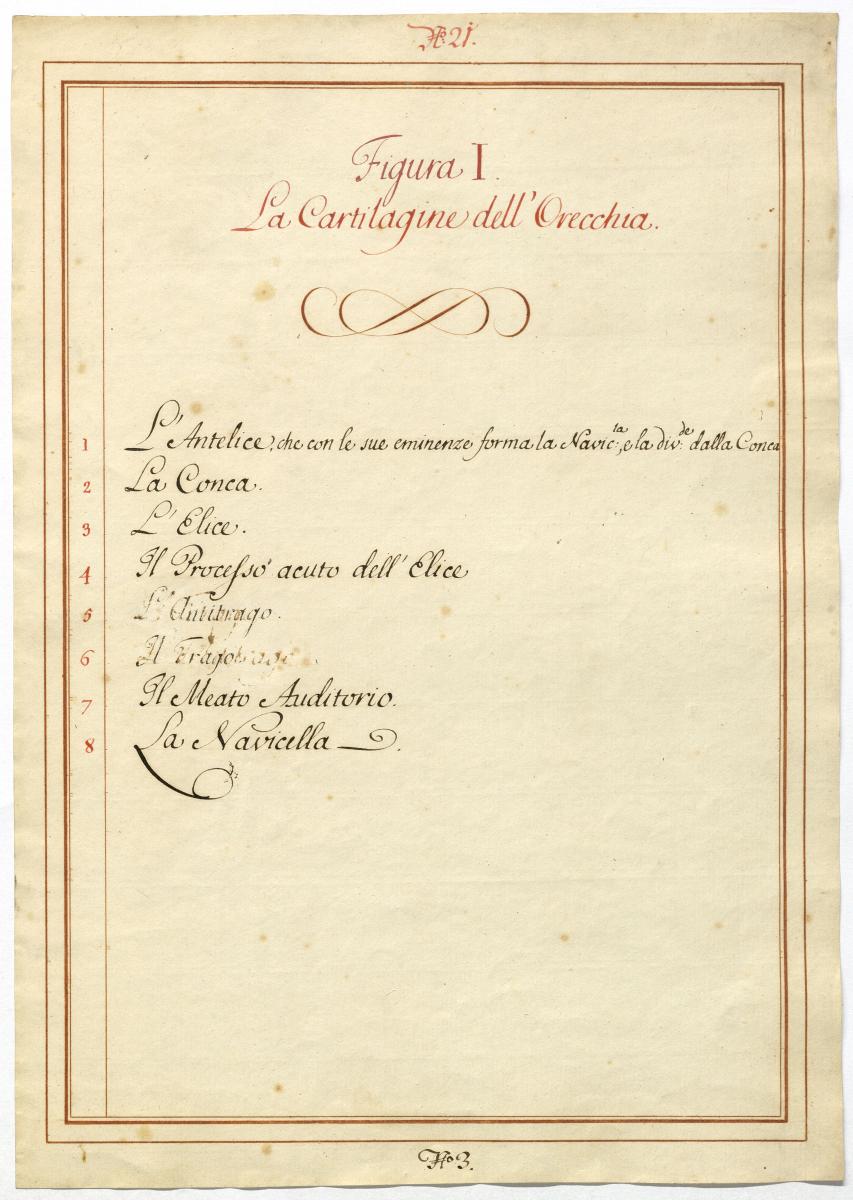 No 21.
Figura I.
La Cartilagine dell' Orecchia.
1 L' Antelice, che con le sue eminenze forma la Navic:la, e la div:de dalla Conca
2 La Conca.
3 L' Elice.
4 Il Processo acuto dell' Elice
5 L' Antitrago.
6 Il Trago
7 Il Meato Auditorio.
8 La Navicella.
No 3.